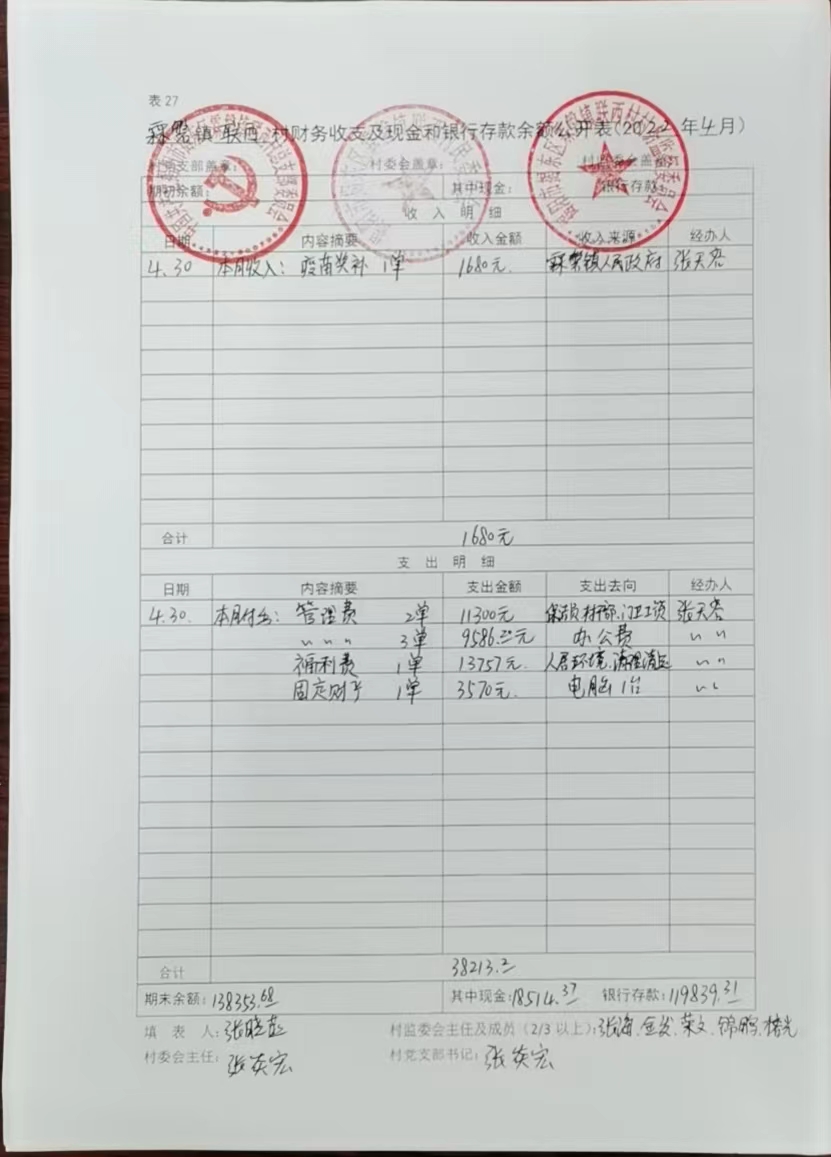 表 27
霖磐镇 联西 村财务收支及现金和银行存款余额公开表(2022 年 4 月)
村党支部盖章: 村委会盖章: 村监委会盖章:
期初余额: 其中现金: 银行存款:
收 入 明 细
日期 内容摘要 收入金额 收入来源 经办人
4.30 本月收入: 疫苗奖补 1单 1680元. 霖磐镇人民政府 张天容
合计 1680元
支 出 明 细
日期 内容摘要 支出金额 支出去向 经办人
4.30. 本月付出: 管理费 2单 11300元 村干部、门卫工资 张天容
〃 〃 〃 3单 9586.2元 办公费 〃 〃
福利费 1单 13757元. 人居环境、清理清运 〃 〃
固定财产 1单 3570元. 电脑1台 〃 〃
合计 38213.2
期末余额: 138353.68 其中现金: 18514.37 银行存款: 119839.31
填 表 人: 张晓 村监委会主任及成员(2/3 以上): 张海、金、荣文、锦鹏、楷光
村委会主任: 张英宏 村党支部书记: 张英宏